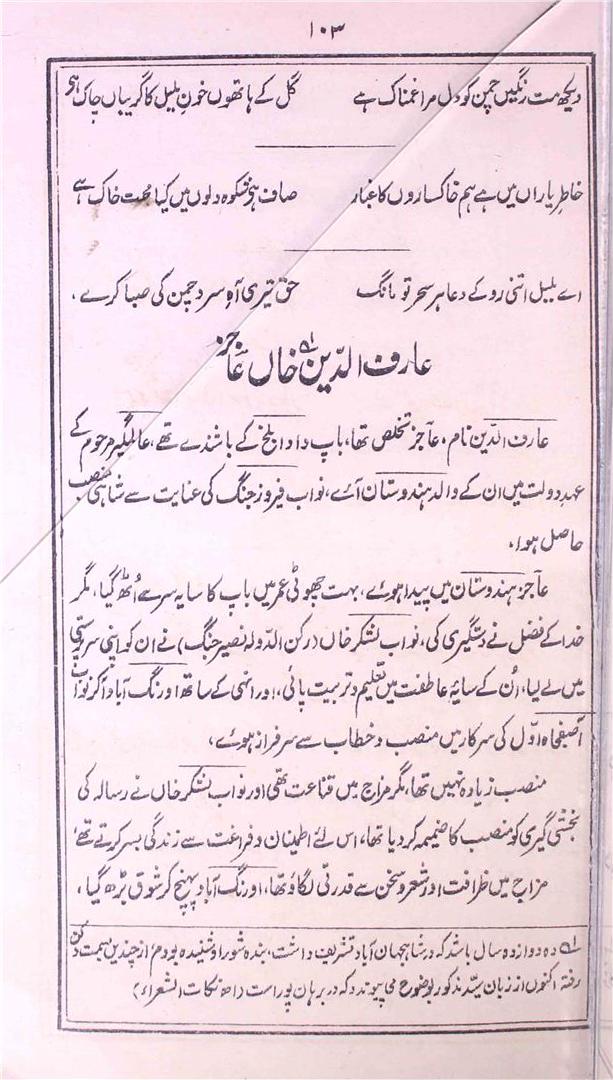 ۱۰۳
دیکھ مت رنگیں چمن کو دل مرا غمناک ہے گل کے ہاتھوں خونِ بلبل کا گریباں چاک ہے
خاطرِ یاراں میں ہے ہم خاکساروں کا غبار صاف ہی شکوہ دلوں میں کیا محبت خاک ہے
اے بلبل اتنی رو کے دعا ہر سحر تو مانگ حق تیری آہِ سرد چمن کی صبا کرے،
عارف الدّین خاں عاجز
عارف الدّین نام، عاجز تخلص تھا، باپ دادا بلخ کے باشندے تھے، عالمگیر مرحوم کے
عہدِ دولت میں ان کے والد ہندوستان آئے، نواب فیروز جنگ کی عنایت سے شاہی منصب
حاصل ہوا،
عاجز ہندوستان میں پیدا ہوئے، بہت چھوٹی عمر میں باپ کا سایہ سر سے اُٹھ گیا، مگر
خدا کے فضل نے دستگیری کی، نواب لشکر خاں (رکن الدولہ نصیر جنگ) نے ان کو اپنی سرپرستی
میں لے لیا، اُن کے سایۂ عاطفت میں تعلیم و تربیت پائی، اور انہی کے ساتھ اورنگ آباد آکر نواب
آصفجاہ اوّل کی سرکار میں منصب و خطاب سے سرفراز ہوئے،
منصب زیادہ نہیں تھا، مگر مزاج میں قناعت تھی اور نواب لشکر خاں نے رسالہ کی
بخشی گیری کو منصب کا ضمیمہ کر دیا تھا، اس لئے اطمینان و فراغت سے زندگی بسر کرتے تھے،
مزاج میں ظرافت اور شعر و سخن سے قدرتی لگاؤ تھا، اورنگ آباد پہنچ کر شوق بڑھ گیا،
دہ دوازدہ سال باشد کہ در شاہجہان آباد تشریف داشت، بندہ شور او شنیدہ بودم از چندیں بسمت دکن
رفتہ اکنوں از زبان سیّد مذکور بوضوح می پیوندد کہ در برہان پور است (نکات الشعراء)